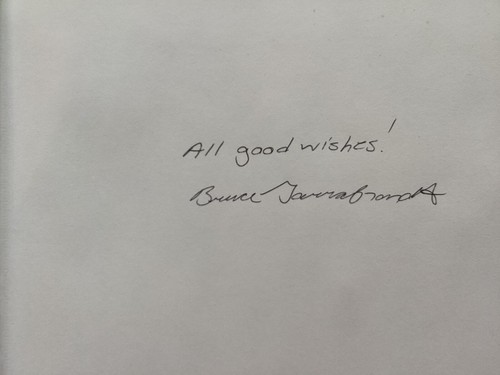 All good wishes!
Bruce